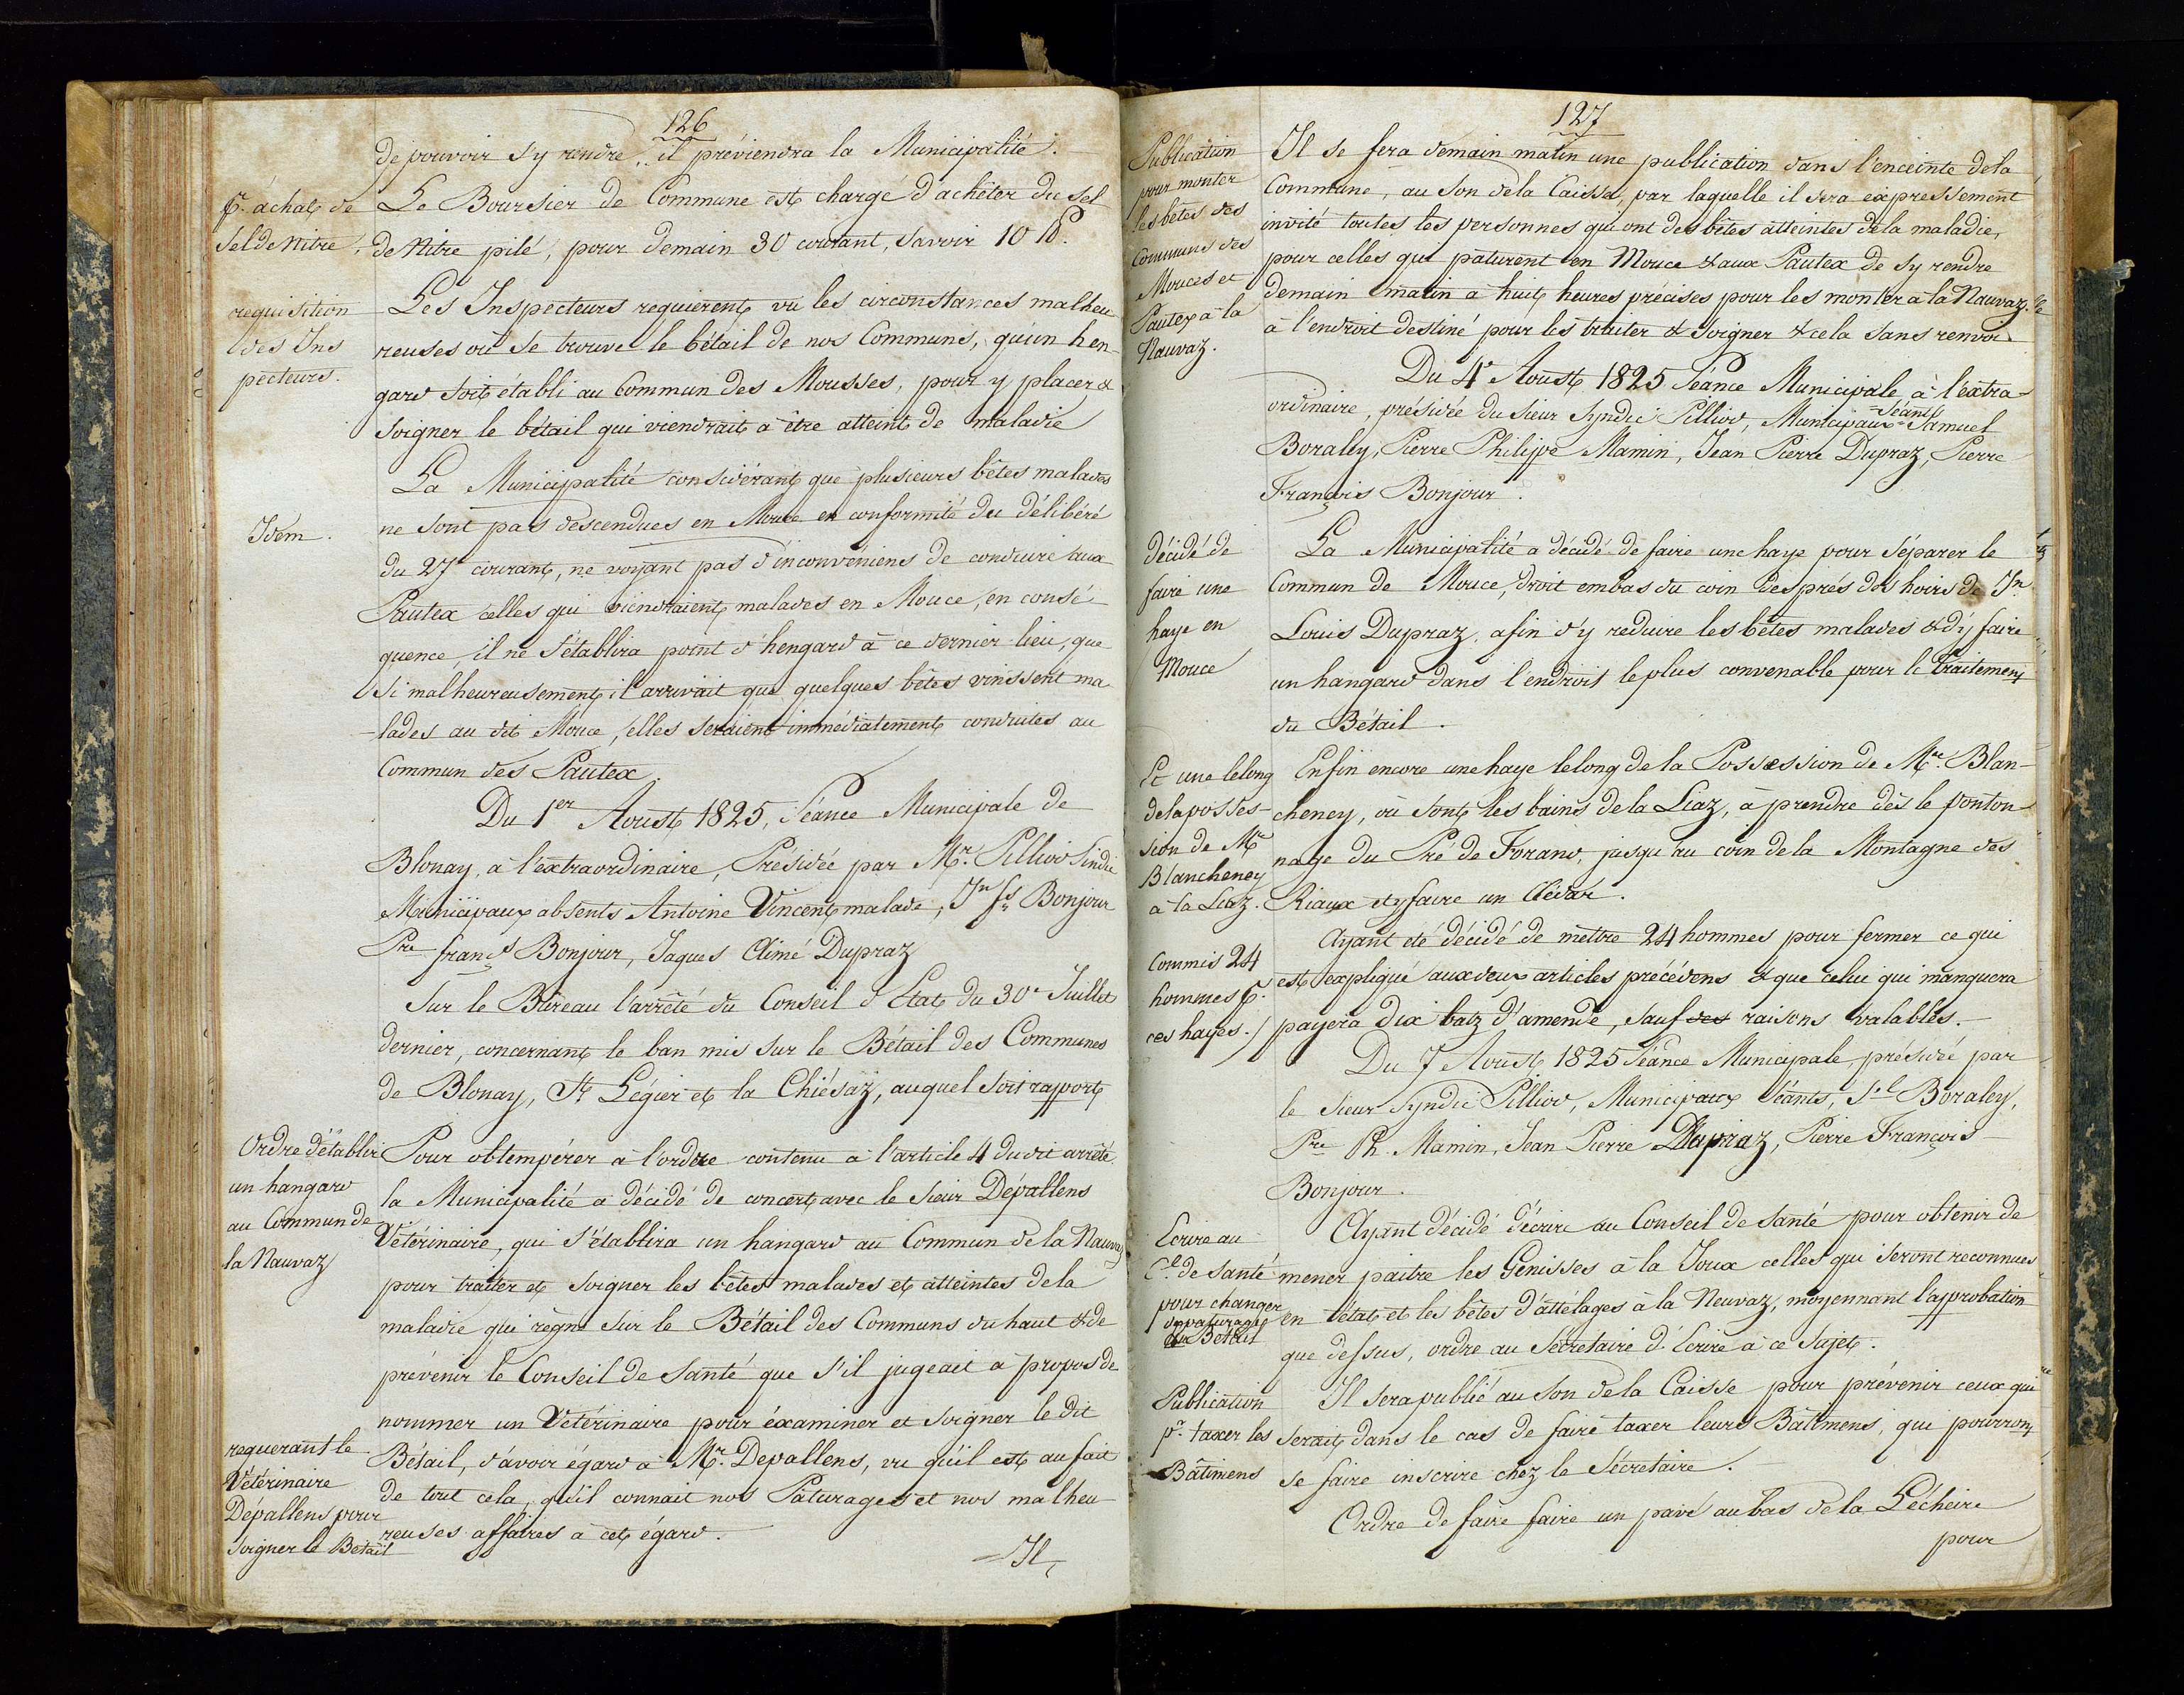 126
de pouvoir s'y rendre, il préviendra la Municipalité.
pr. achat de
Sel de Nitre.
Le Boursier de Commune est chargé d'achêter du sel
de Nitre pilé, pour demain 30 courant, savoir 10 ℔.
requisition
des Ins
pecteurs.
Les Inspecteurs requierent vu les circonstances malheu
reuses où se trouve le bétail de nos Communs, qu'un hen-
gard soit établi au Commun des Mousses, pour y placer &
soigner le bétail qui viendrait à être atteint de maladie
Idem.
La Municipalité considérant que plusieurs bêtes malades
ne sont pas descendues en Mouce en conformité du délibéré
du 27e courant, ne voyant pas d'inconvéniens de conduire aux
Pautex celles qui viendraient malades en Mouce, en consé-
quence, il ne s'établira point d'hengard à ce dernier lieu, que
si malheureusement il arrivait que quelques bêtes vinssent ma
-lades au dit Mouce, elles seraient immédiatement conduites au
Commun des Pautex.
Du 1er Aoust 1825, Séance Municipale de
Blonay, à l'extraordinaire, Présidée par Mr. Pilliod Sindic
Municipaux absents Antoine Vincent malade, Jn fs Bonjour
Pre françs Bonjour, Jaques Aimé Dupraz
Sur le Bureau l'arrêté du Conseil d'Etat du 30e Juillet
dernier, concernant le ban mis sur le Bétail des Communes
de Blonay, St Légier et la Chiésaz, auquel soit rapport
Ordre d'établir
un hangard
au Commun de
la Nauvaz
Pour obtempérer à l'ordre contenu à l'article 4 du dit arrêté
la Municipalité a décidé de concert avec le sieur Dépallens
Vétérinaire, qui s'établira un hangard au Commun de la Nauvaz
pour traiter et soigner les bêtes malades et atteintes de la
maladie qui règne sur le Bétail des Communs du haut & de
prévenir le Conseil de Santé que s'il jugeait à propos de
nommer un Vétérinaire pour éxaminer et soigner le dit
requerant le
Vétérinaire
Dépallens pour
soigner le Betail
Bétail, d'avoir égard à Mr. Depallens, vu qu'il est au fait
de tout cela, qu'il connait nos Paturages et nos malheu
reuses affaires à cet égard.
Il
127
Publication
pour monter
les bêtes des
Communs des
Mouces et
Pautex à la
Nauvaz.
Il se fera demain matin une publication dans l'enceinte de la
Commune, au son de la Caisse, par laquelle il sera expressement
invité toutes les personnes qui ont des bêtes atteintes de la maladie,
pour celles qui paturent en Mouce & aux Pautex de s'y rendre
demain matin à huit heures précises pour les monter à la Nauvaz
à l'endroit destiné pour les traiter & soigner & cela sans renvoi
Du 4e Aoust 1825 Séance Municipale à l'extra-
ordinaire, présidée du sieur Syndic Pilliod, Municipaux Séants Samuel
Boraley, Pierre Philippe Mamin, Jean Pierre Dupraz, Pierre
François Bonjour.
décidé de
faire une
haye en
Mouce
La Municipalité a décidé de faire une haye pour séparer le
Commun de Mouce, droit embas du coin des prés des hoirs de Jn
Louis Dupraz, afin d'y reduire les bêtes malades & d'y faire
un hangard dans l'endroit le plus convenable pour le traitement
du Bétail.
Et une le long
de la posses-
sion de Mr
Blancheney
à la Liaz.
Enfin encore une haye le long de la Possession de Mr. Blan-
cheney, où sont les bains de la Liaz, à prendre dès le ponton-
nage du Pré de Forand, jusqu'au coin de la Montagne des
Riaux et y faire un Clédar.
Commis 24
hommes pr.
ces hayes.
Ayant été décidé de mettre 24 hommes pour fermer ce qui
est expliqué aux deux articles précédens & que celui qui manquera
payera dix batz d'amende, sauf des raisons valables.
Du 7 Aoust 1825 Séance Municipale, présidée par
le sieur Syndic Pilliod, Municipaux Séants, Sel Boraley,
Pre Ph. Mamin, Jean Pierre Dupraz, Pierre François
Bonjour.
Ecrire au
Cl. de Santé
pour changer
de paturage
du Bétail
Ayant décidé d'écrire au Conseil de Santé pour obtenir de
mener paitre les Génisses à la Joux celles qui seront reconnues
en état et les bêtes d'attélages à la Neuvaz, moyennant l'approbation
que dessus, ordre au Sécretaire d'Ecrire à ce sujet.
Publication
pr. taxer les
Bâtimens
Il sera publié au son de la Caisse pour prévenir ceux qui
serait dans le cas de faire taxer leurs Bâtimens, qui pourront
se faire inscrire chez le Sécretaire.
Ordre de faire faire un pavé au bas de la Pêcheire
pour